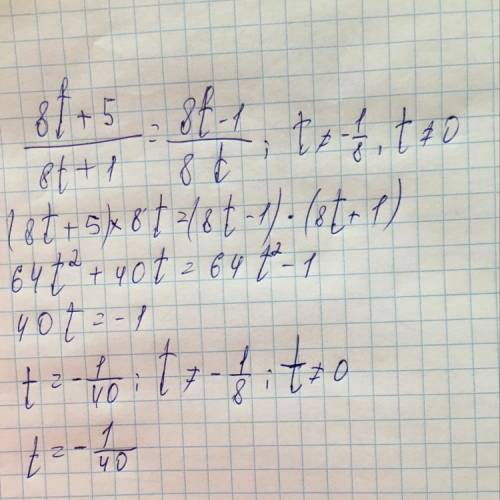 (8t + 5)/(8t + 1) = (8t - 1)/(8t) ; t ≠ -1/8, t ≠ 0
(8t + 5) × 8t = (8t - 1) · (8t + 1)
64t² + 40t = 64t² - 1
40t = -1
t = -1/40 ; t ≠ -1/8 ; t ≠ 0
t = -1/40